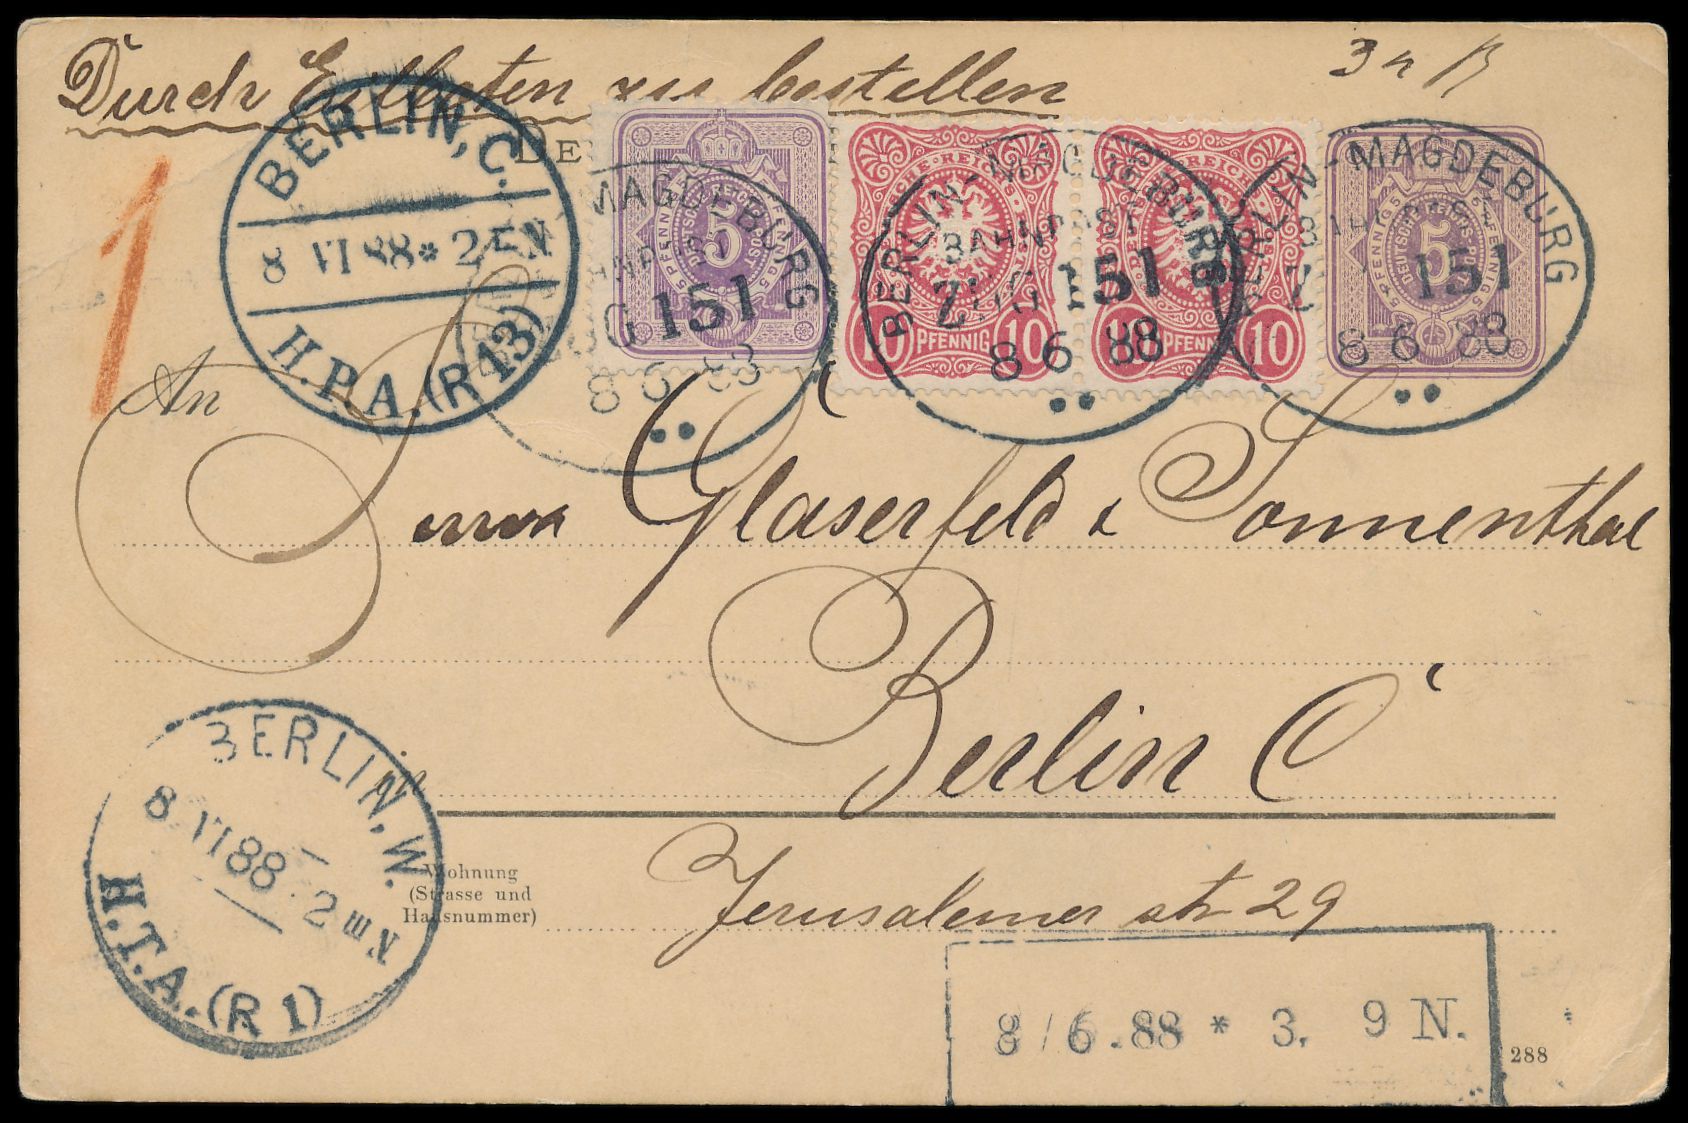 Durch Eilboten zu bestellen
3 n B
DE
BERLIN, C.
8 VI 88 * 2 N
H.P.A. (R 13)
MAGDEBURG
151
8 6 88
5 PFENNIG 5
DEUTSCHE REICHS-POST
5
10 PFENNIG 10
BERLIN-MAGDEBURG
BAHNPOST
ZUG 151
8 6 88
PFENNIG 10
BERLIN-MAGDEBURG
151
8 6 88
5
1
An
Herren Glaserfeld & Sonnenthal
Berlin C
in
BERLIN, W.
8. VI 88. 2 N
H.T.A. (R 1)
Wohnung
(Strasse und
Hausnummer)
Jerusalemer str 29
8/6.88 * 3. 9 N.
288